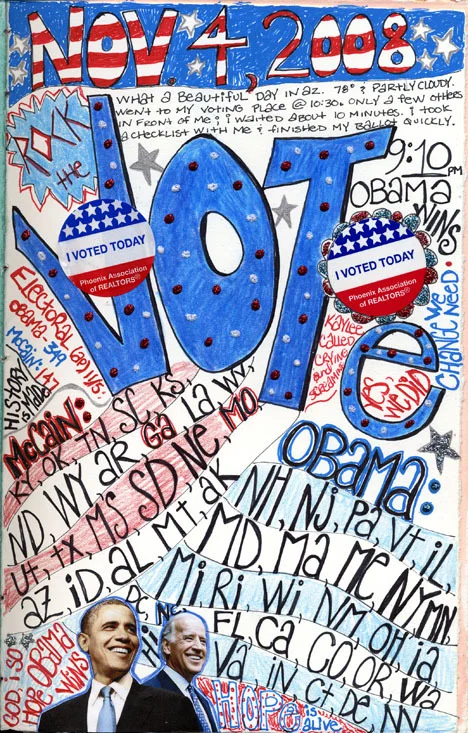 NOV. 4, 2008
WHAT A BEAUTIFUL DAY IN AZ. 78° & PARTLY CLOUDY.
WENT TO MY VOTING PLACE @ 10:30. ONLY A FEW OTHERS
IN FRONT OF ME & I WAITED ABOUT 10 MINUTES. I TOOK
A CHECKLIST WITH ME & FINISHED MY BALLOT QUICKLY.
ROCK
the
VOTe
9:10 PM
OBAMA
WINS
I VOTED TODAY
Phoenix Association
of REALTORS®
I VOTED TODAY
Phoenix Association
of REALTORS®
CHANGE WE
NEED.
ELECTORAL
OBAMA: 349
McCAIN: 147
HISTORY
IS MADE
KAYLEE
CALLED
CRYING
and
SCREAMING
YES,
WE DID
McCain:
KY, OK, TN, SC, KS,
ND, WY, AR, GA, LA, WV,
UT, TX, MS, SD, NE, MO,
AZ, ID, AL, MT, AK
OBAMA:
NH, NJ, PA, VT, IL,
MD, MA, ME, NY, MN,
MI, RI, WI, NM, OH, IA,
FL, CA, CO, OR, WA
VA, IN, CT, DE, NV
GOD, I SO
HOPE OBAMA
WINS
HOPE is
alive